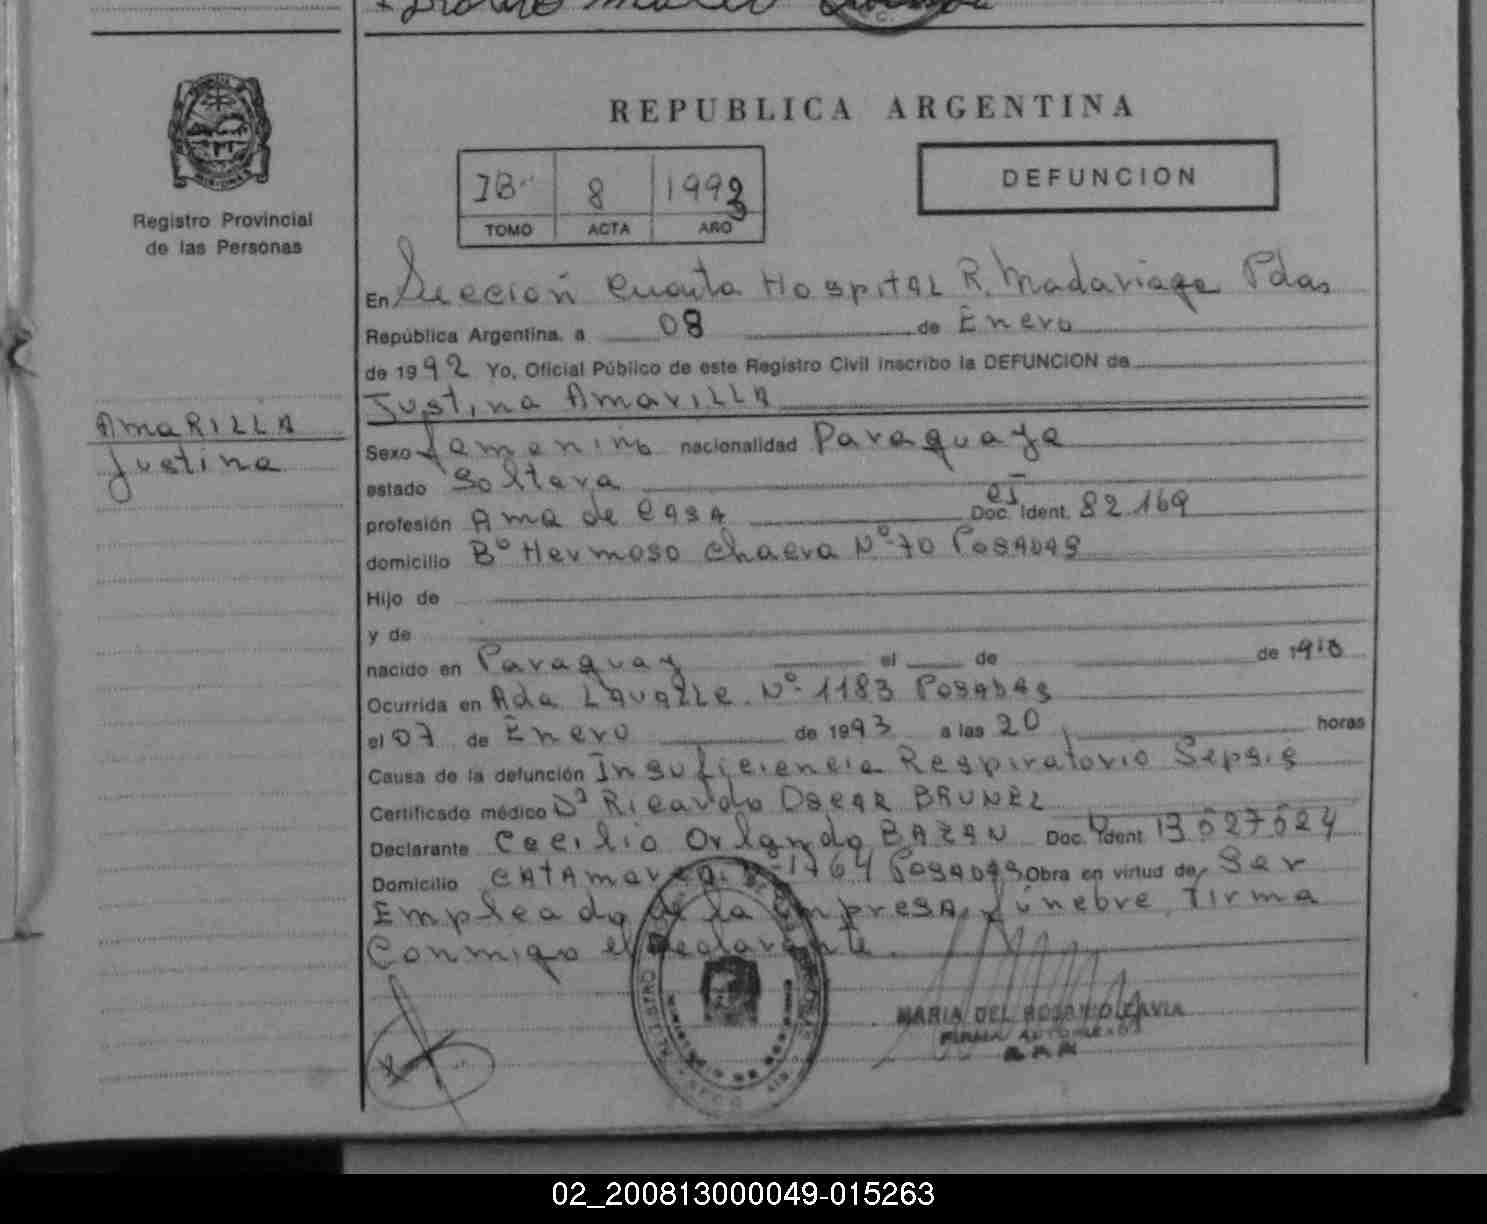 REPUBLICA ARGENTINA
DEFUNCION
IB 8 1993
TOMO ACTA AÑO
Registro Provincial
de las Personas
En Sección Cuarta Hospital R. Madariaga Pdas
República Argentina, a 08 de Enero
de 1992 Yo, Oficial Público de este Registro Civil inscribo la DEFUNCION de
Justina AmarILLA
AmaRILLA
Justina
Sexo femenino nacionalidad Paraguaya
estado Soltera
profesión Ama de casa Doc. Ident. 82.169
domicilio B° Hermoso Chacra N° 70 Posadas
Hijo de
y de
nacido en Paraguay el de de 1910
Ocurrida en Ada Lavalle N° 1183 Posadas
el 07 de Enero de 1993 a las 20 horas
Causa de la defunción Insuficiencia Respiratorio Sepsis
Certificado médico Dr Ricardo Oscar BRUNEL
Declarante Cecilio Orlando BAZAN Doc. Ident. 13.027.024
Domicilio CATAmarca N° 1764 Posadas Obra en virtud de Ser
Empleado de la Empresa fúnebre Firma
Conmigo el declarante.
MARIA DEL ROSARIO
FIRMA AUTORIZADA
02_200813000049-015263